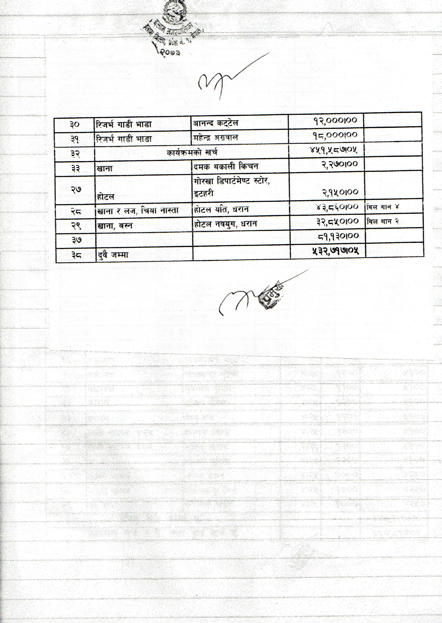 २०७३
३० रिजर्भ गाडी भाडा आनन्द कट्टेल १२,०००।००
३१ रिजर्भ गाडी भाडा महेन्द्र अग्रवाल १८,०००।००
३२ कार्यक्रमको खर्च ४५१,५८७।०५
३३ खाना दमक थकाली किचन २,२७०।००
२७ होटल गोरखा डिपार्टमेण्ट स्टोर, इटहरी २,१५०।००
२८ खाना र लज, चिया नास्ता होटल यति, धरान ४३,८६०।०० बिल थान ४
२९ खाना, बस्न होटल नवयुग, धरान ३२,८५०।०० बिल थान २
३७ ८१,१३०।००
३८ दुवै जम्मा ५३२,७१७।०५